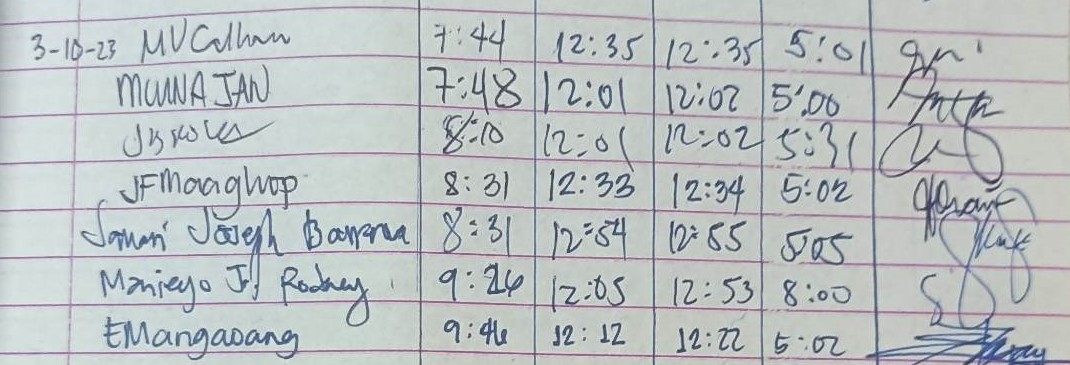 3-10-23 MV 7:44 12:35 12:35 5:01
JAN 7:48 12:01 12:02 5:00
8:10 12:01 12:02 5:31
JFMaaghop 8:31 12:33 12:34 5:02
Joseph 8:31 12:54 12:55 5:05
Maniego Jr Rodney 9:26 12:05 12:53 8:00
EMangaoang 9:46 12:12 12:22 5:02